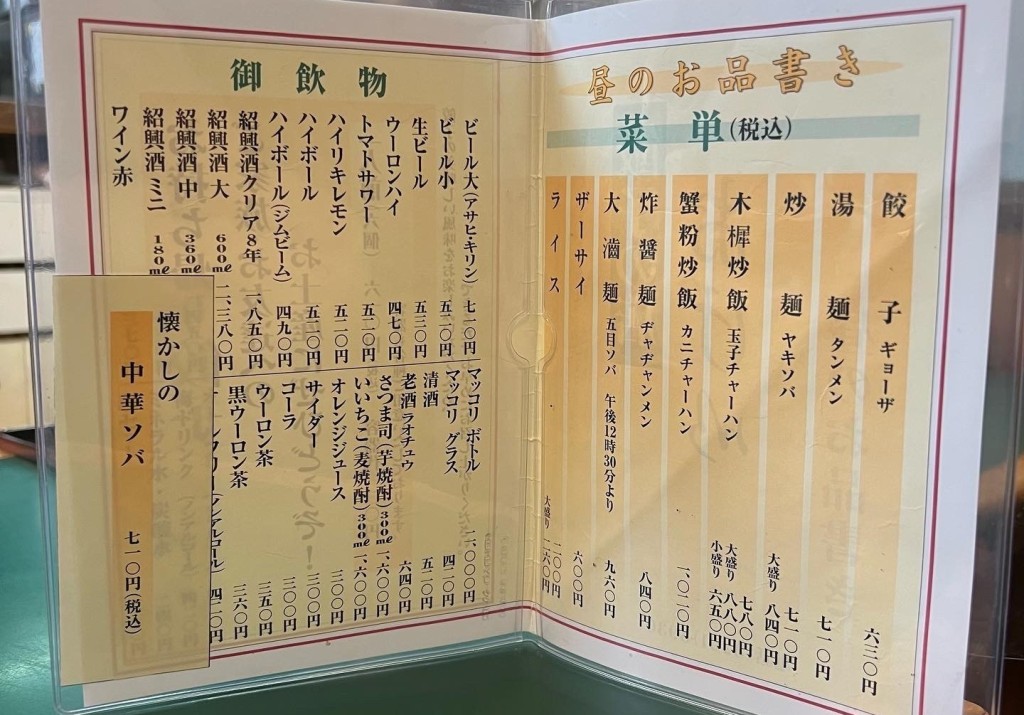 昼のお品書き
菜単(税込)
餃子 ギョーザ 六三〇円
湯麺 タンメン 七一〇円
炒麺 ヤキソバ 七一〇円
大盛り 八四〇円
木樨炒飯 玉子チャーハン 七八〇円
大盛り 八八〇円
小盛り 六五〇円
蟹粉炒飯 カニチャーハン 一、〇二〇円
炸醤麺 ヂャヂャンメン 八四〇円
大滷麺 五目ソバ 午後12時30分より 九六〇円
ザーサイ 六〇〇円
ライス 二〇〇円
大盛り 二六〇円
御飲物
ビール大(アサヒ・キリン) 七一〇円
ビール小 五二〇円
生ビール 五三〇円
ウーロンハイ 四七〇円
トマトサワー 五二〇円
ハイリキレモン 五二〇円
ハイボール 五五〇円
ハイボール(ジムビーム) 四九〇円
紹興酒クリア8年 一、八五〇円
紹興酒 大 600㎖ 二、三八〇円
紹興酒 中 360㎖
紹興酒 ミニ 180㎖
ワイン赤
マッコリ ボトル 二、〇〇〇円
マッコリ グラス 四二〇円
清酒 五二〇円
老酒 ラオチュウ 六四〇円
さつま司(芋焼酎)300㎖ 一、六〇〇円
いいちこ(麦焼酎)300㎖ 一、六〇〇円
オレンジジュース 三〇〇円
サイダー 三〇〇円
コーラ 三〇〇円
ウーロン茶 三五〇円
黒ウーロン茶 三六〇円
フリー(ノンアルコール) 四二〇円
懐かしの
中華ソバ 七一〇円(税込)